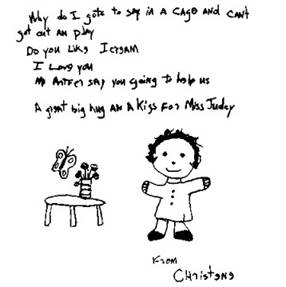 Why do I gote to say in a CAGE and can't
got out an play
Do you like Icream
I Love you
say you going to help us
A great big hug an a kiss For Miss Judey
From
CHRISTENE